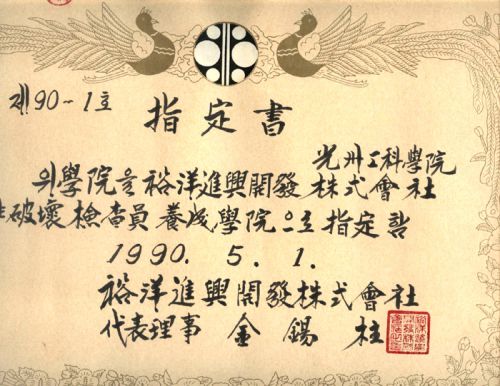 제90-1호
指定書
光州工科學院
위學院을 裕洋進興開發株式會社
破壞檢査員養成學院으로 指定함
1990. 5. 1.
裕洋進興開發株式會社
代表理事 金錫柱